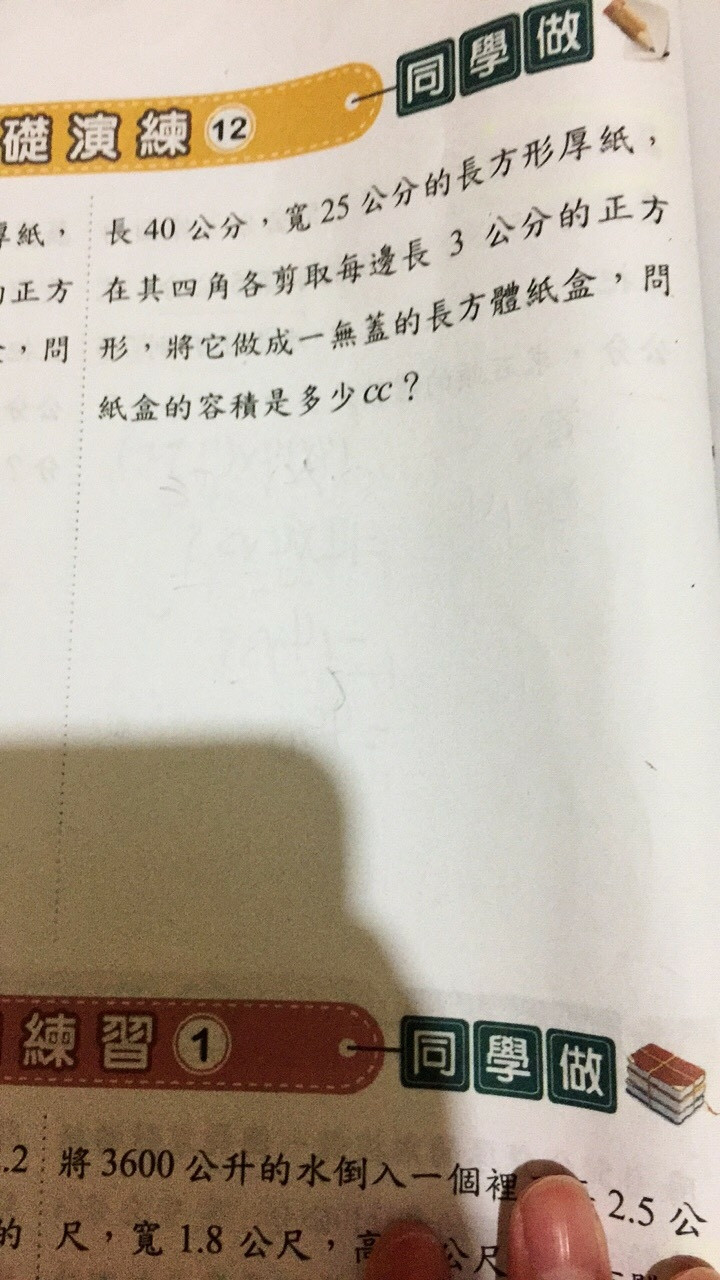 同學做
礎演練 12
長 40 公分，寬 25 公分的長方形厚紙，
在其四角各剪取每邊長 3 公分的正方
形，將它做成一無蓋的長方體紙盒，問
紙盒的容積是多少 cc？
厚紙，
的正方
，問
練習 1
同學做
將 3600 公升的水倒入一個裡 2.5 公
尺，寬 1.8 公尺，高 公尺
.2
的